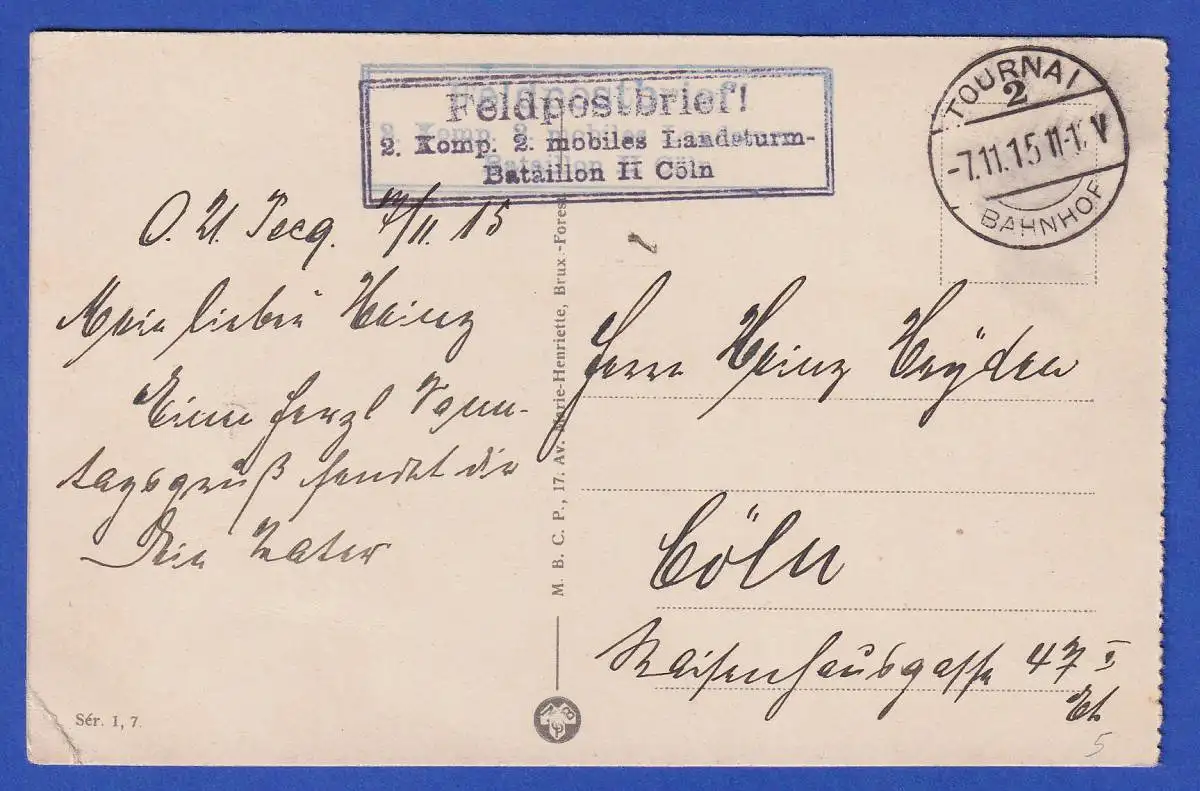 Feldpostbrief!
2. Komp. 2. mobiles Landsturm-
Bataillon II Cöln
TOURNAI
2
-7.11.15 11-1 V
BAHNHOF
O. U. 7/11. 15
Mein lieber Heinz
Einen herzl Sonn-
tagsgruß sendet dir
Dein Vater
Sér. I, 7.
M. B. C. P., 17. Av. Marie-Henriette, Brux.-Forest
Herrn Heinz Heyden
Cöln
Waisenhausgasse 47 I
5